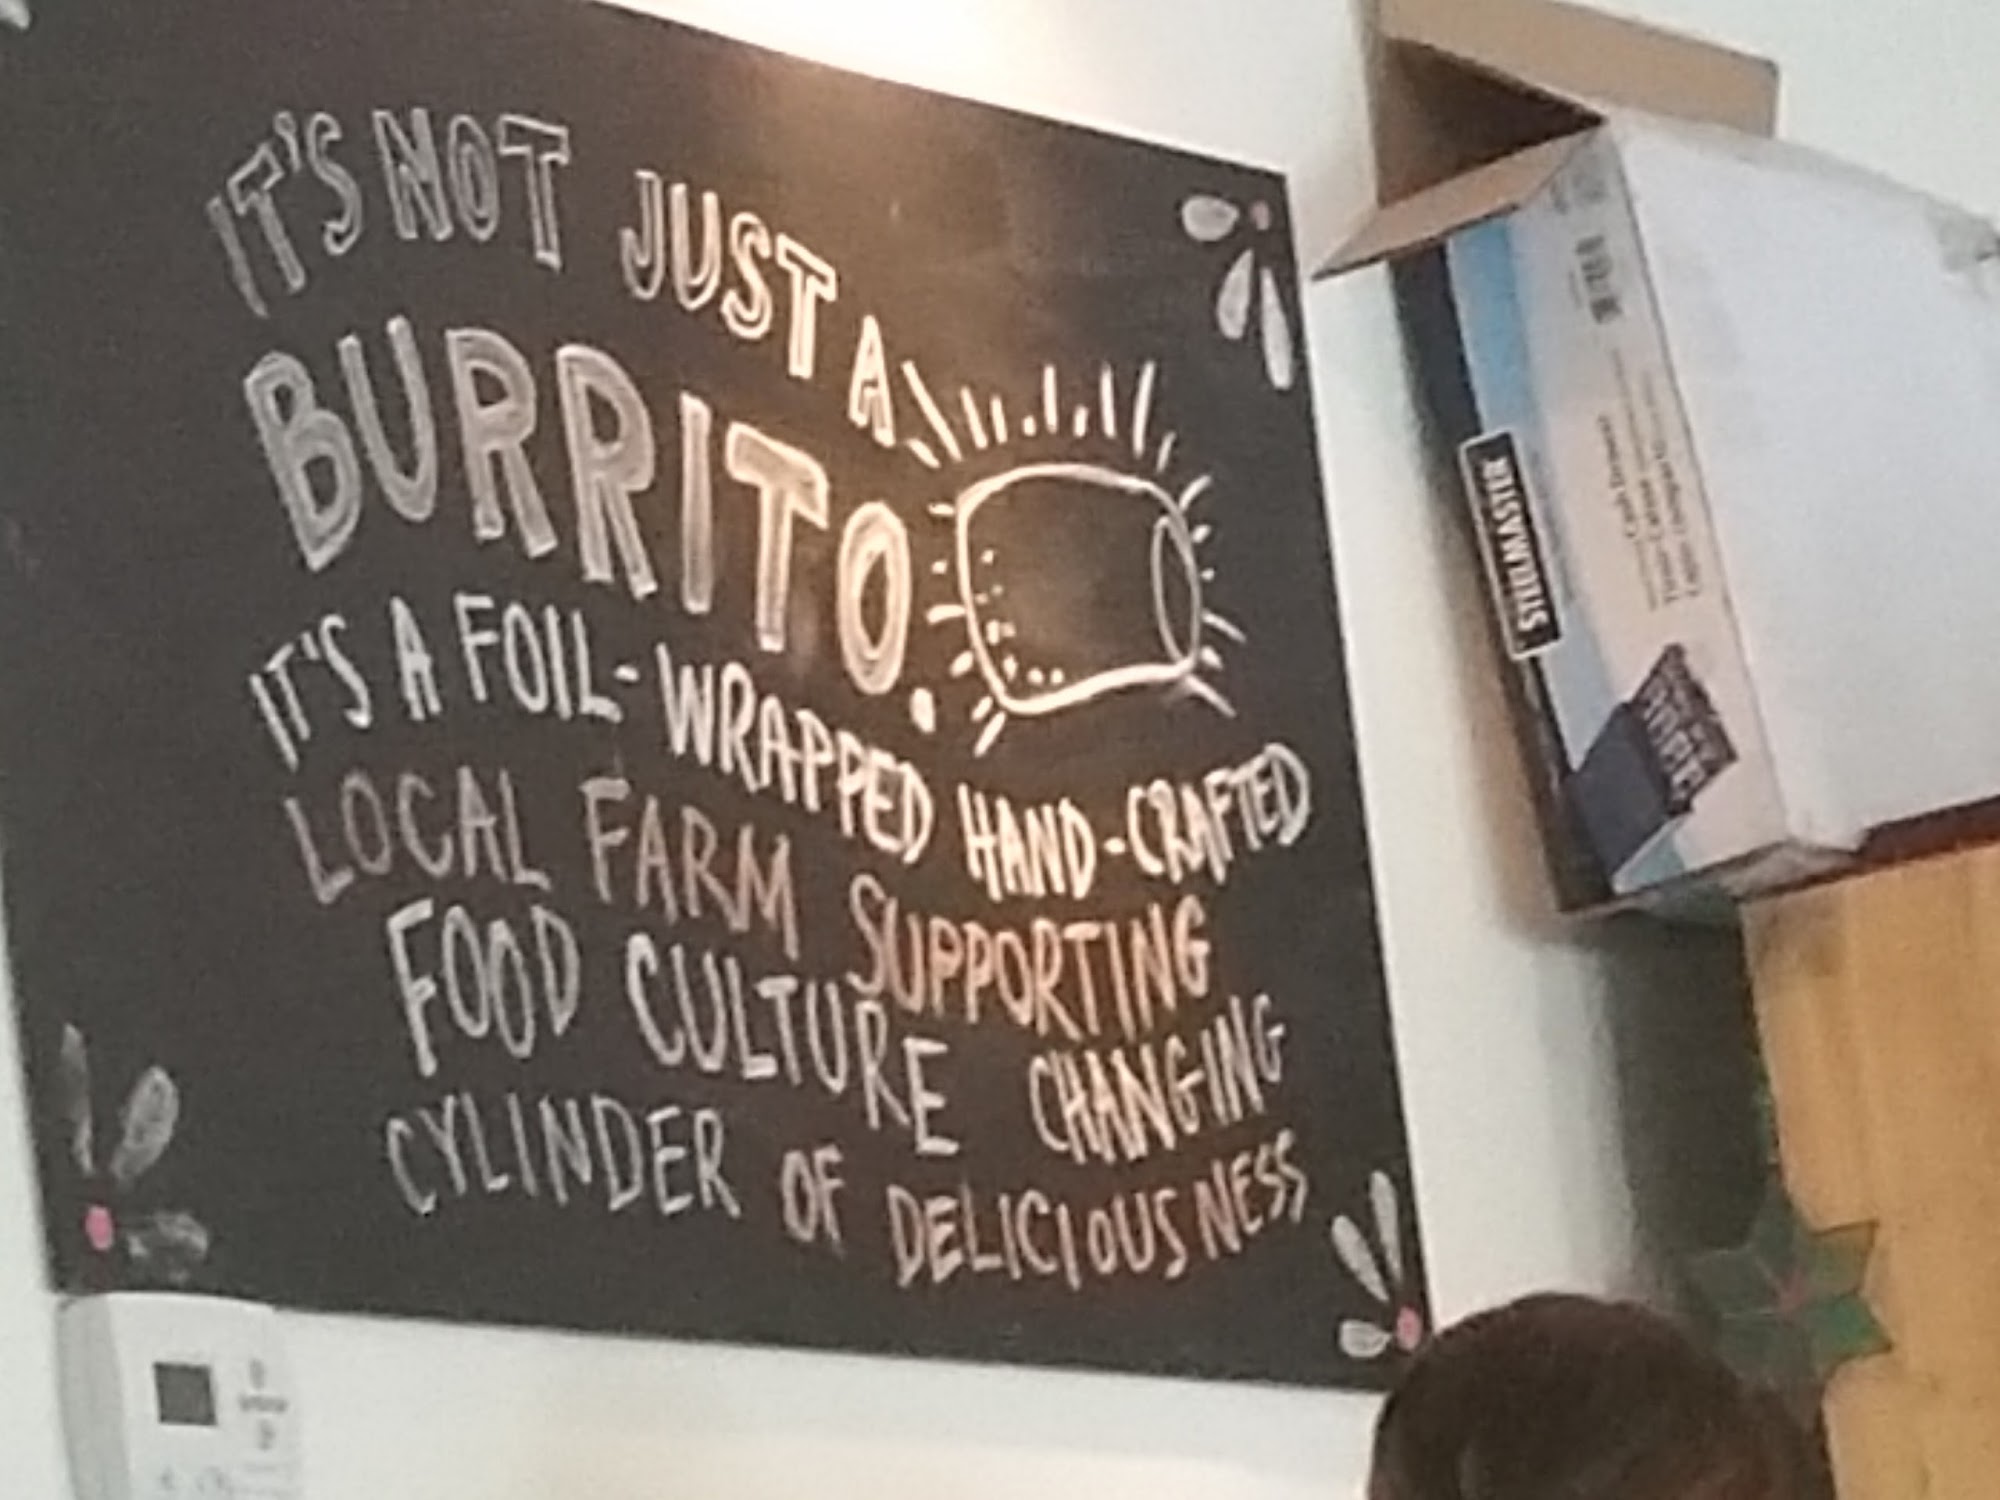 IT'S NOT JUST A
BURRITO.
IT'S A FOIL-WRAPPED HAND-CRAFTED
LOCAL FARM SUPPORTING
FOOD CULTURE CHANGING
CYLINDER OF DELICIOUSNESS
STEELMASTER
Cash Drawer